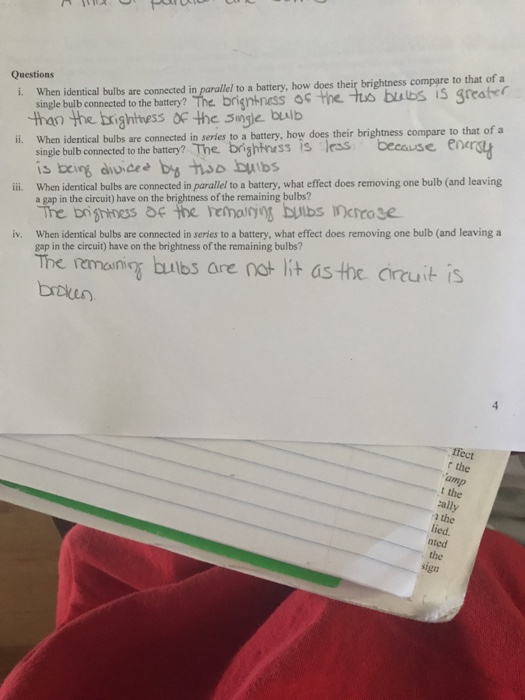 Questions
i. When identical bulbs are connected in parallel to a battery, how does their brightness compare to that of a
single bulb connected to the battery? The brightness of the two bulbs is greater
than the brightness of the single bulb
ii. When identical bulbs are connected in series to a battery, how does their brightness compare to that of a
single bulb connected to the battery? The brightness is less because energy
is being divided by two bulbs
iii. When identical bulbs are connected in parallel to a battery, what effect does removing one bulb (and leaving
a gap in the circuit) have on the brightness of the remaining bulbs?
The brightness of the remaining bulbs increase
iv. When identical bulbs are connected in series to a battery, what effect does removing one bulb (and leaving a
gap in the circuit) have on the brightness of the remaining bulbs?
The remaining bulbs are not lit as the circuit is
broken.
4
ffect
the
amp
t the
cally
the
lied.
nted
the
sign